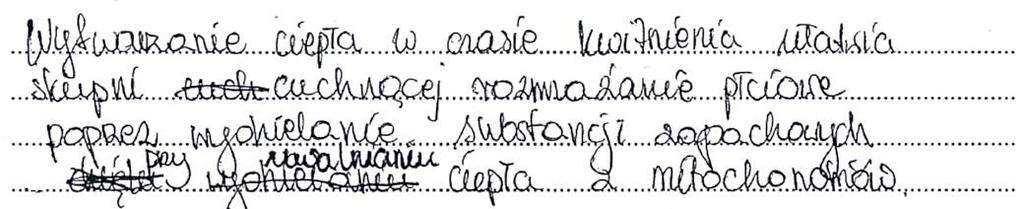 Wytwarzanie ciepła w czasie kwitnienia ułatwia
skupni cuchnącej rozmnażanie płciowe
poprzez wydzielanie substancji zapachowych
przy uwalnianiu ciepła z mitochondriów.